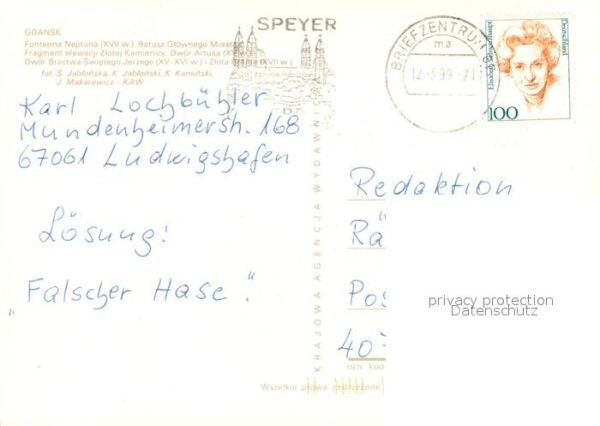 GDAŃSK
Fontanna Neptuna (XVII w.) Ratusz Głównego Miasta
Fragment elewacji Złotej Kamienicy. Dwór Artusa (X
Dwór Bractwa Świętego Jerzego (XV-XVI w.) i Złota
fot. S. Jabłońska, K. Jabłoński, K. Kamiński,
J. Makarewicz - KAW
SPEYER
BRIEFZENTRUM
ma
12.-3.99.-21
Deutschland
100
Karl Lochbühler
Mundenheimerstr. 168
67061 Ludwigshafen
Lösung:
„Falscher Hase".
KRAJOWA AGENCJA WYDAWNICZA
Redaktion
Rä
Pos
40
privacy protection
Datenschutz
ozn kod
Wszelkie prawa zastrzeżone